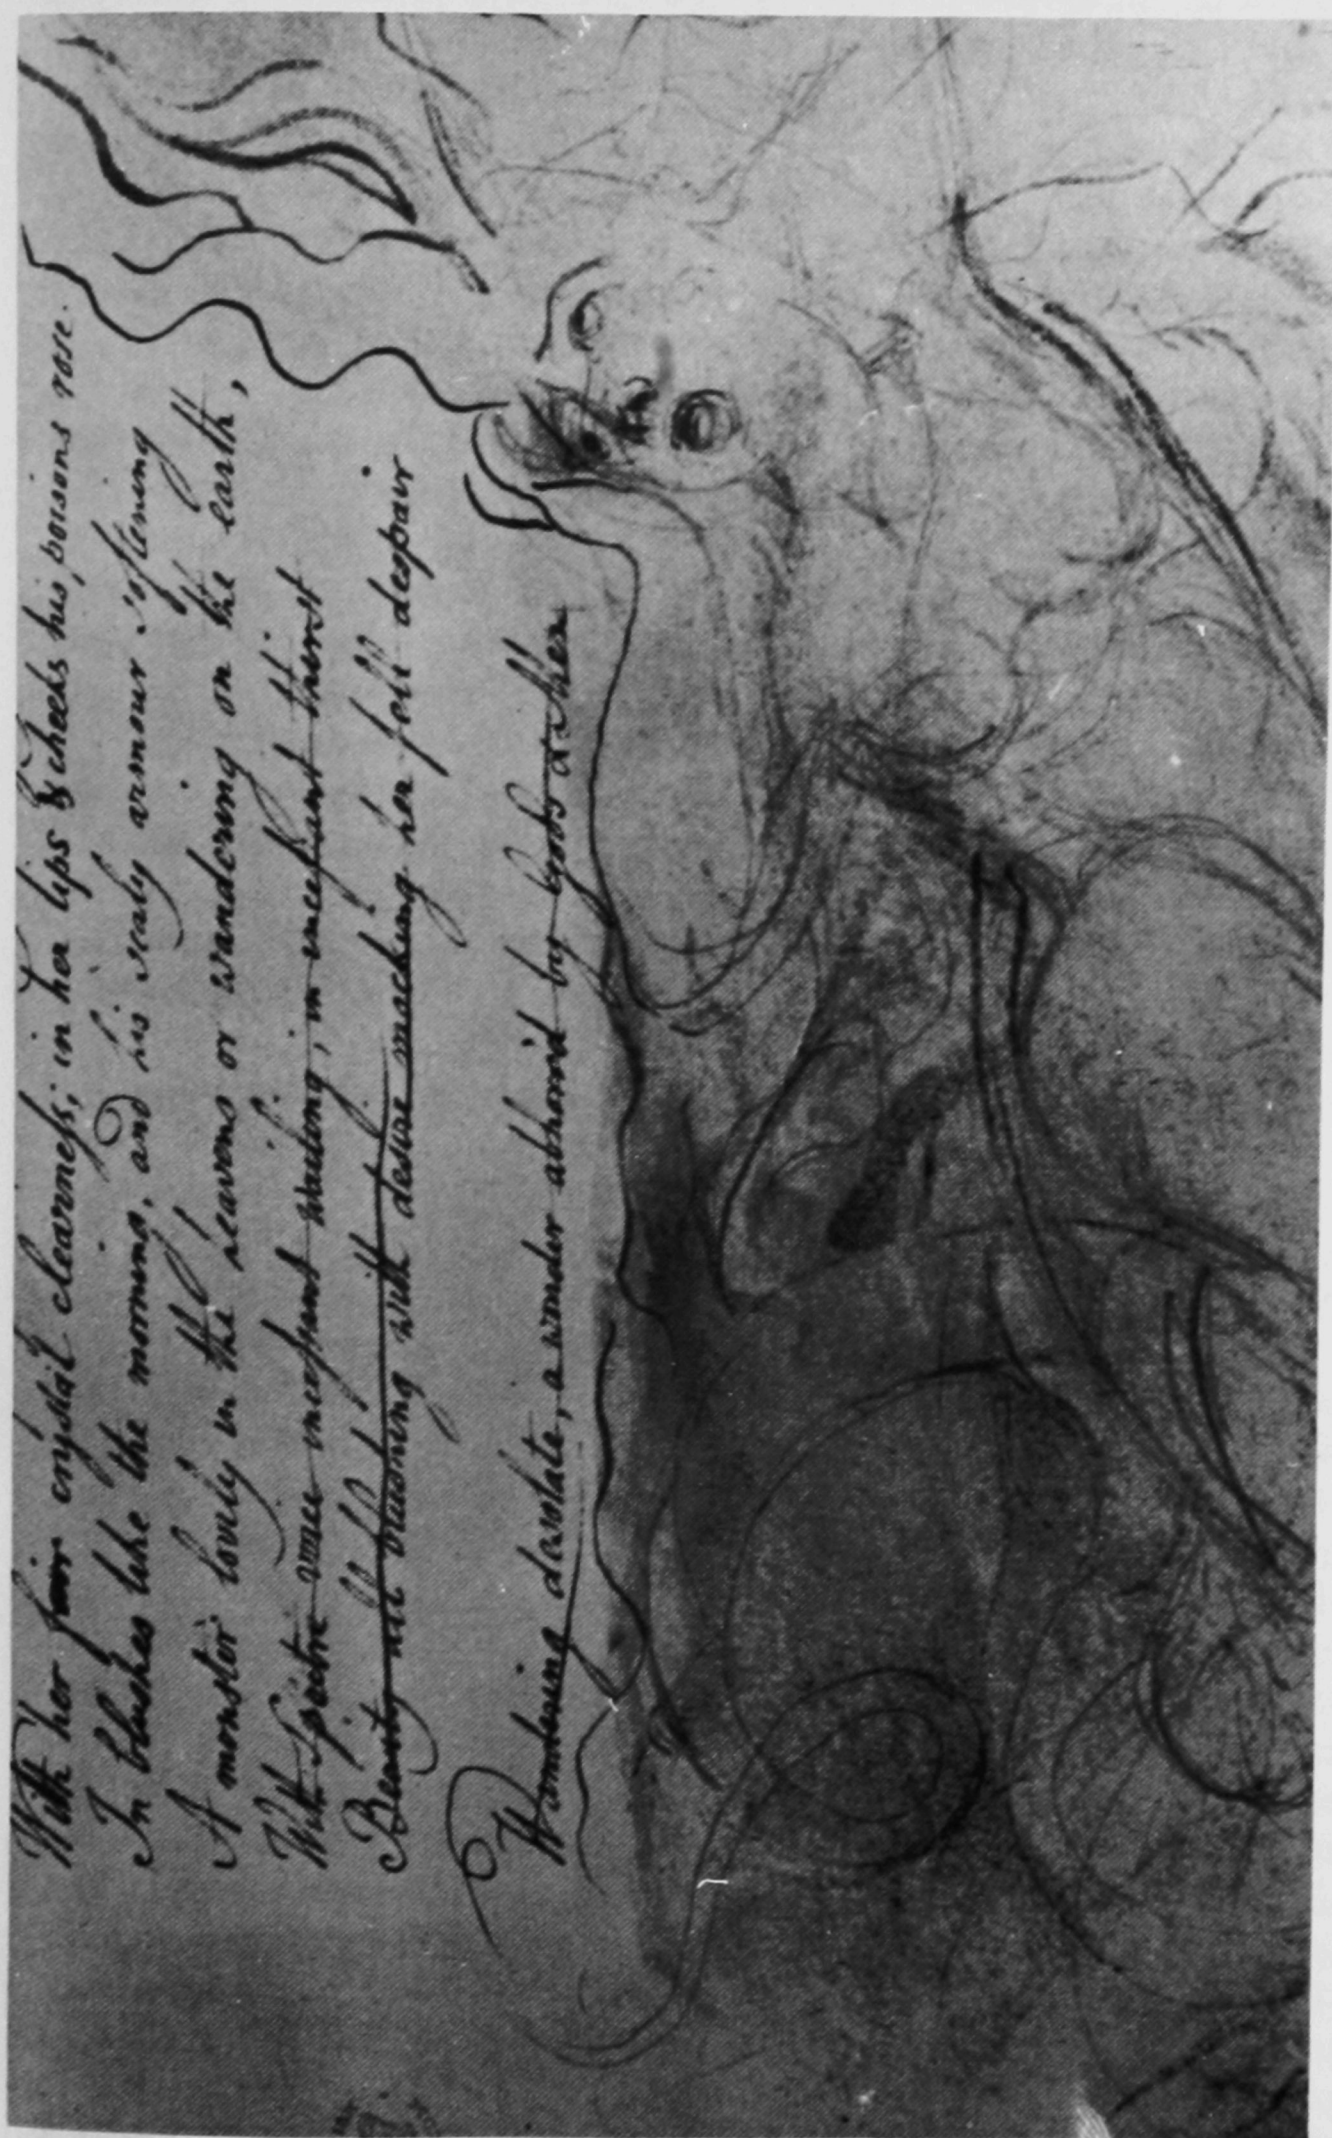 With her fair crystal clearness; in her lips & cheeks his poisons rose
In blushes like the morning, and his scaly armour softening
A monster lovely in the heavens or wandering on the earth,
With Spectre voice incessant wailing; in incessant thirst
Beauty all blushing with desire mocking her fell despair
Wandering desolate, a wonder abhorr'd by Gods &